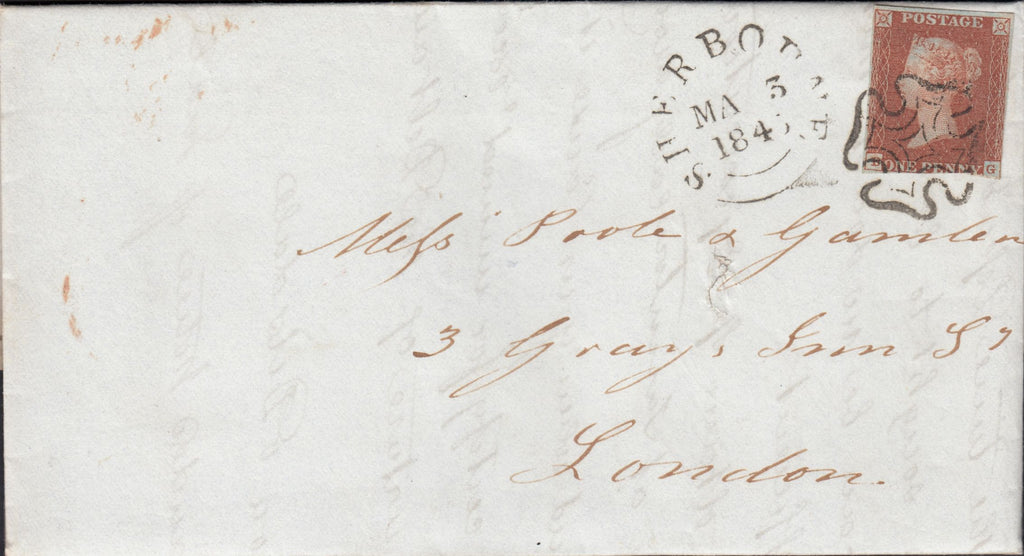 POSTAGE
ONE PENNY
G
SHERBOURNE
MA 3
184
Mess Poole & Gamlen
3 Grays Inn Sq
London.